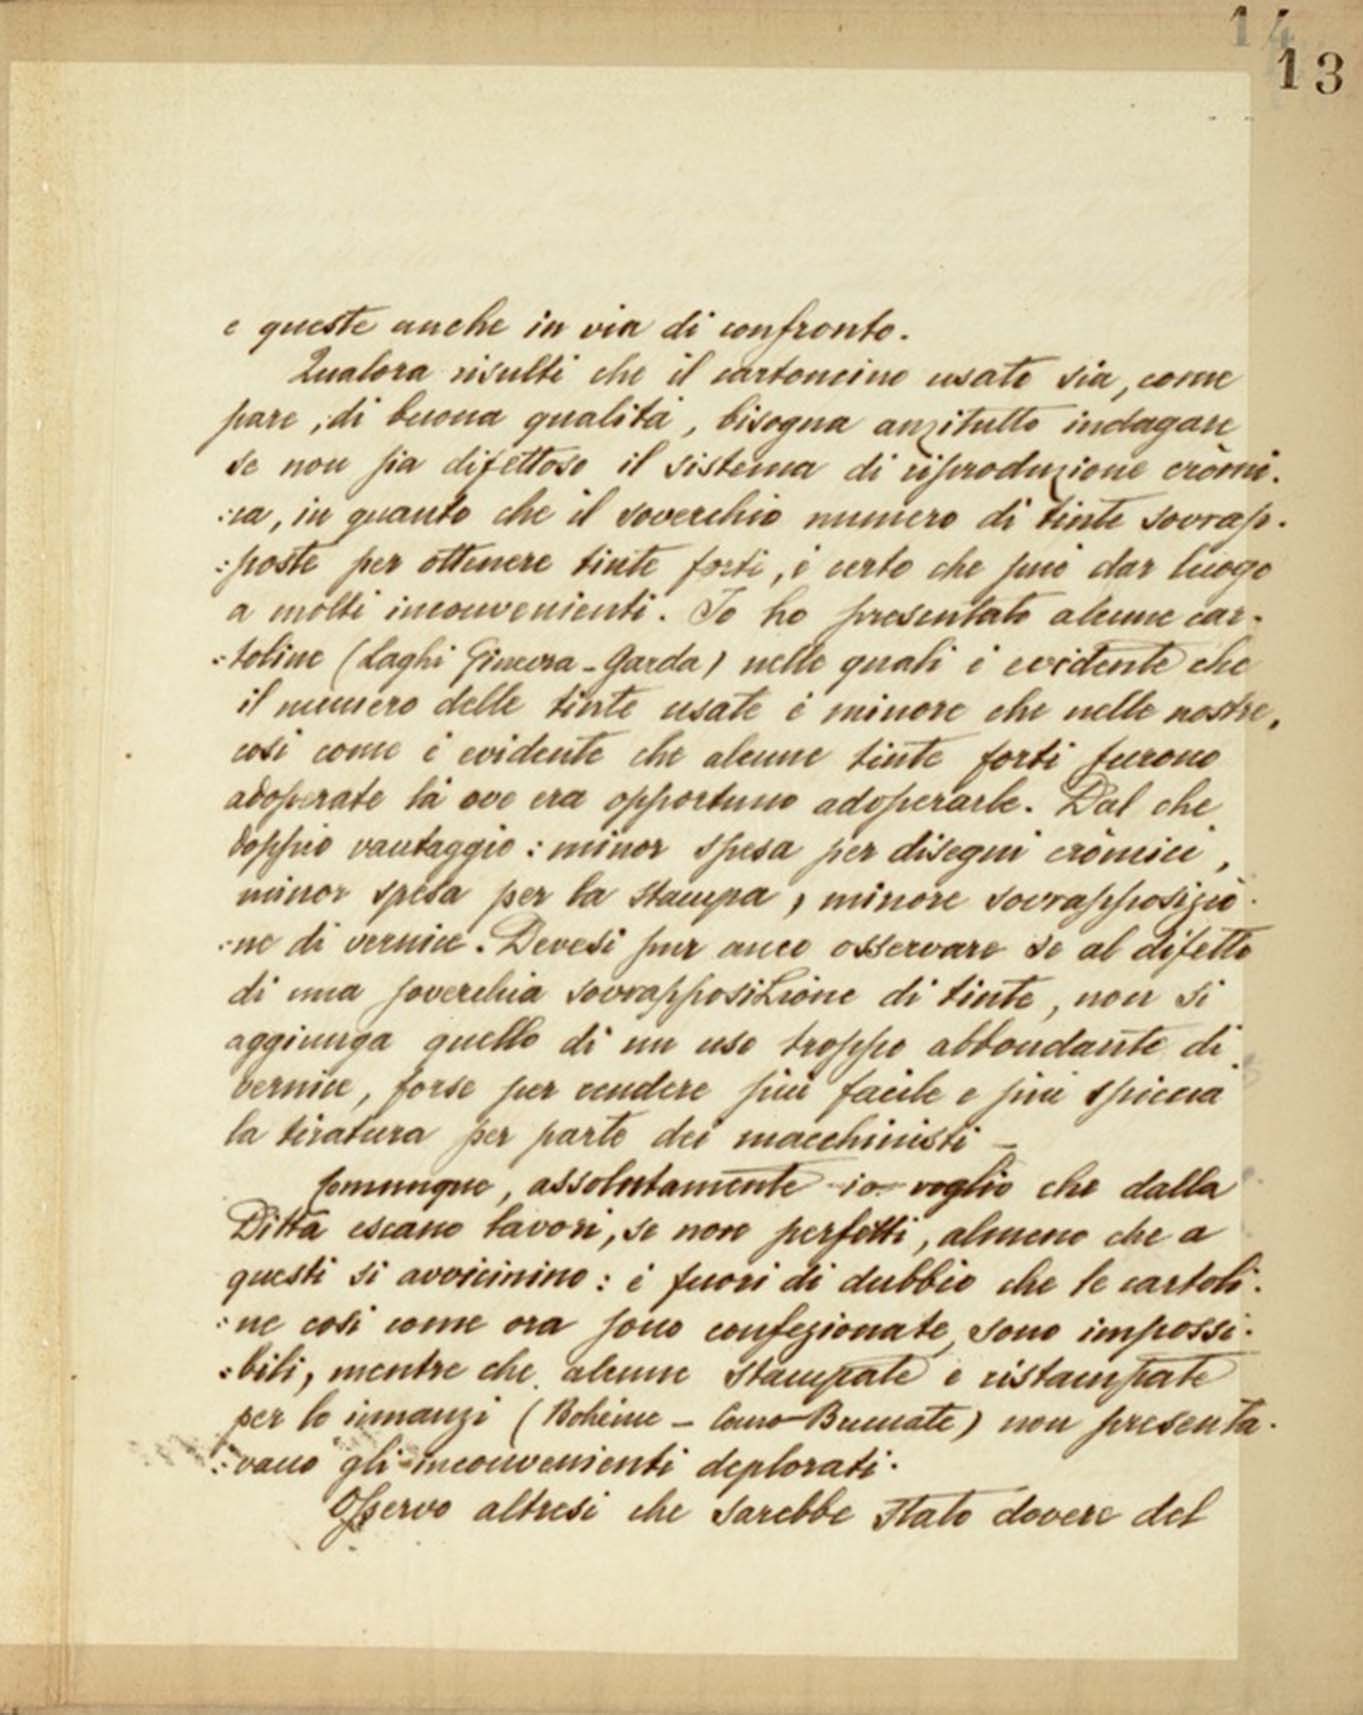 14
13
e queste anche in via di confronto.
Qualora risulti che il cartoncino usato sia, come
pare, di buona qualità, bisogna anzitutto indagare
se non sia difettoso il sistema di riproduzione cròmi-
:ca, in quanto che il soverchio numero di tinte sovrap-
:poste per ottenere tinte forti, è certo che può dar luogo
a molti inconvenienti. Io ho presentato alcune car-
:toline (Laghi Ginevra - Garda) nelle quali è evidente che
il numero delle tinte usate è minore che nelle nostre,
così come è evidente che alcune tinte forti furono
adoperate là ove era opportuno adoperarle. Dal che
doppio vantaggio: minor spesa per disegni cròmici,
minor spesa per la stampa, minore sovrapposizio-
:ne di vernice. Devesi pur anco osservare se al difetto
di una soverchia sovrapposizione di tinte, non si
aggiunga quello di un uso troppo abbondante di
vernice, forse per rendere più facile e più spiccia
la tiratura per parte dei macchinisti -
Comunque, assolutamente io voglio che dalla
Ditta escano lavori, se non perfetti, almeno che a
questi si avvicinino: è fuori di dubbio che le cartoli-
:ne così come ora sono confezionate, sono impossi-
:bili, mentre che alcune stampate e ristampate
per lo innanzi (Bohème - Como-Brunate) non presenta-
:vano gli inconvenienti deplorati.
Osservo altresì che sarebbe stato dovere del